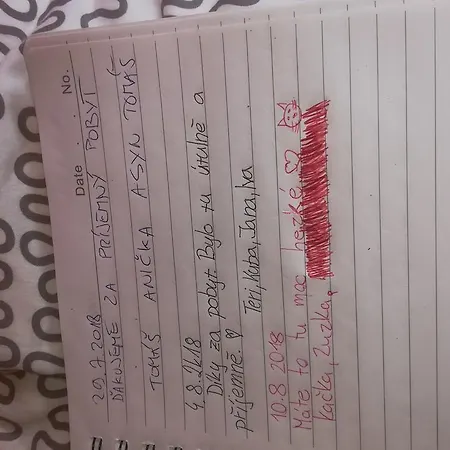 Date No.
29.7.2018
ĎAKUJEME ZA PRÍJEMNÝ POBYT
TOMÁŠ ANIČKA A SYN TOMÁŠ
4.8.2018
Díky za pobyt. Bylo tu útulně a
příjemně. ♡ Teri, Kuba, Jana, Iva
10.8 2018
Máte to tu moc hezké ♡
Kačka, Zuzka,